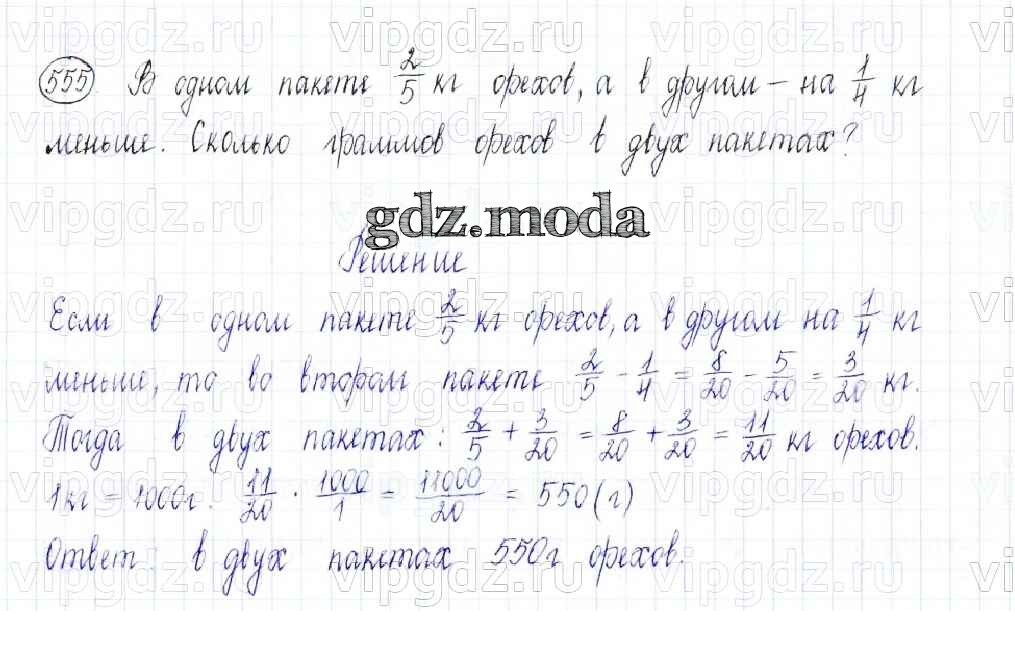 555 В одном пакете 2/5 кг орехов, а в другом – на 1/4 кг
меньше. Сколько граммов орехов в двух пакетах?
gdz.moda
Решение
Если в одном пакете 2/5 кг орехов, а в другом на 1/4 кг
меньше, то во втором пакете 2/5 - 1/4 = 8/20 - 5/20 = 3/20 кг.
Тогда в двух пакетах: 2/5 + 3/20 = 8/20 + 3/20 = 11/20 кг орехов.
1кг = 1000г. 11/20 · 1000/1 = 11000/20 = 550 (г)
Ответ: в двух пакетах 550г орехов.
vipgdz.ru